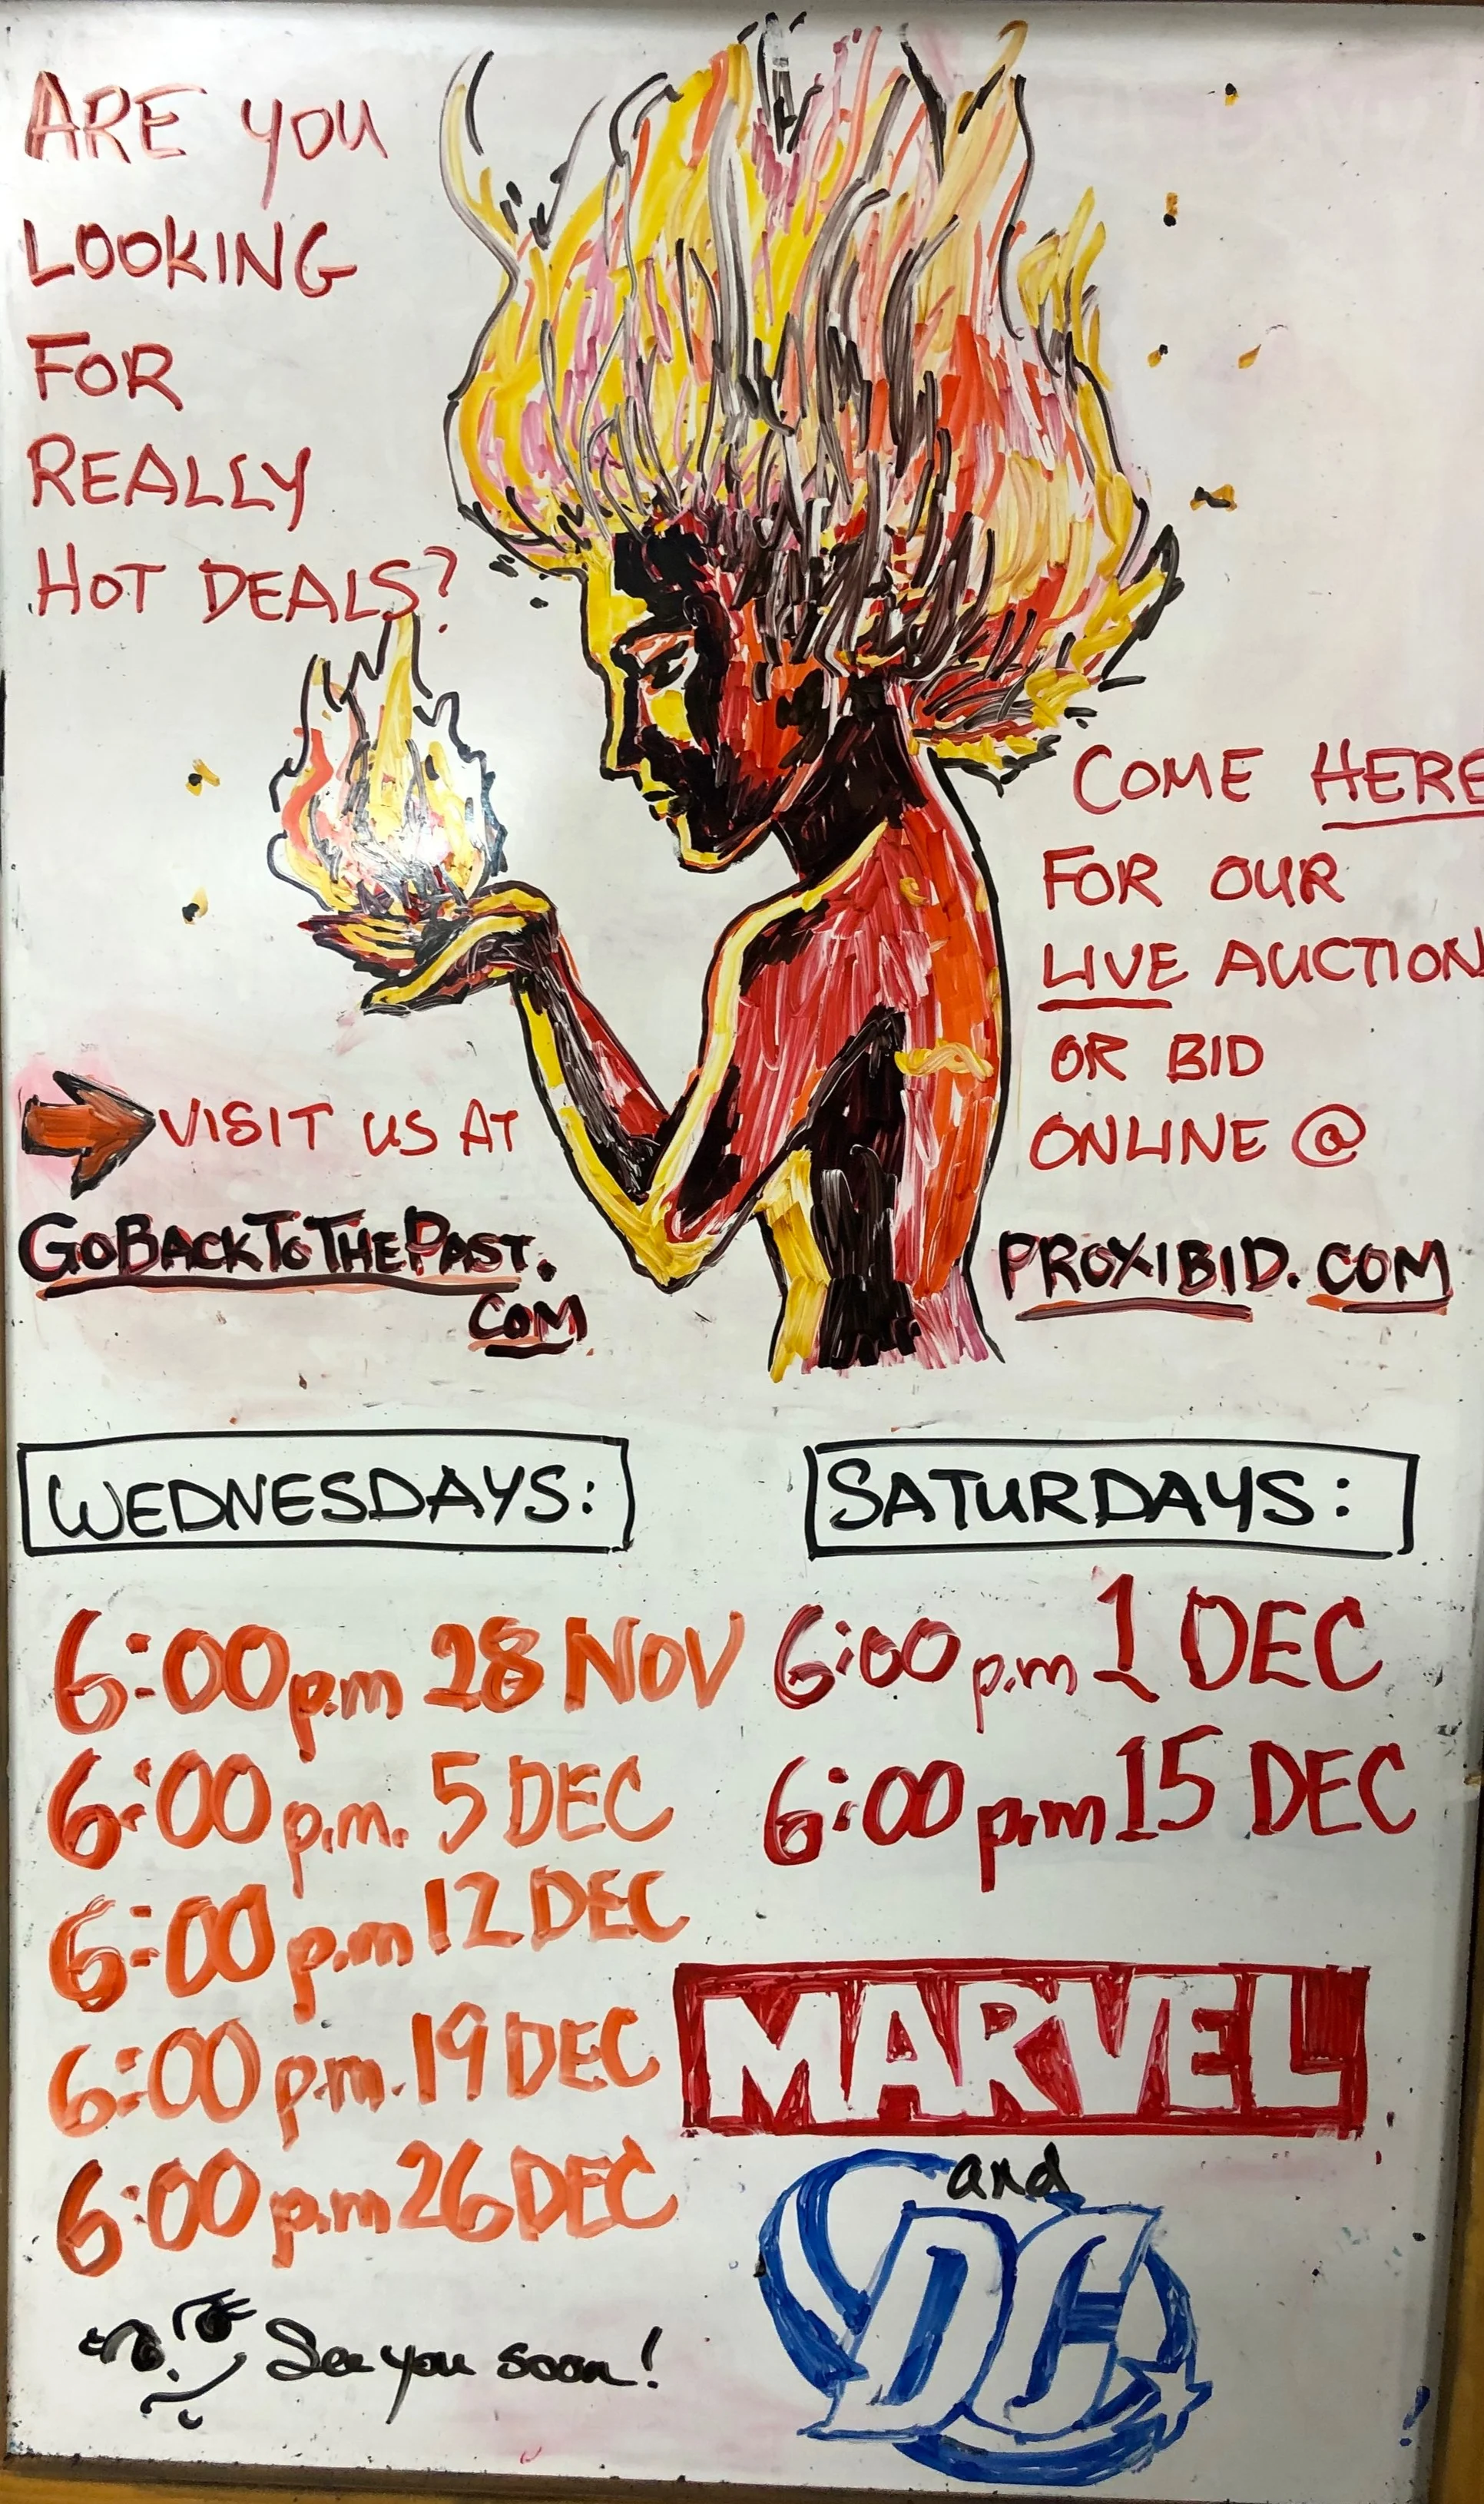 ARE YOU
LOOKING
FOR
REALLY
HOT DEALS?
COME HERE
FOR OUR
LIVE AUCTION
OR BID
ONLINE @
PROXIBID.COM
VISIT US AT
GOBACKTOTHEPAST.
COM
WEDNESDAYS:
6:00 p.m 28 NOV
6:00 p.m. 5 DEC
6:00 p.m 12 DEC
6:00 p.m. 19 DEC
6:00 p.m 26 DEC
See you soon!
SATURDAYS:
6:00 p.m 1 DEC
6:00 p.m 15 DEC
MARVEL
and
DC
!